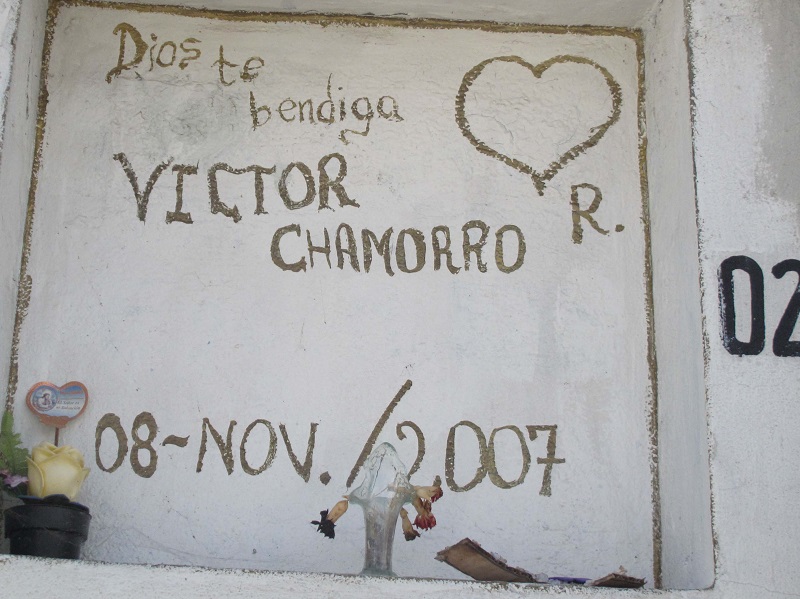 Dios te
bendiga
VICTOR
CHAMORRO R.
08-NOV./2007
02